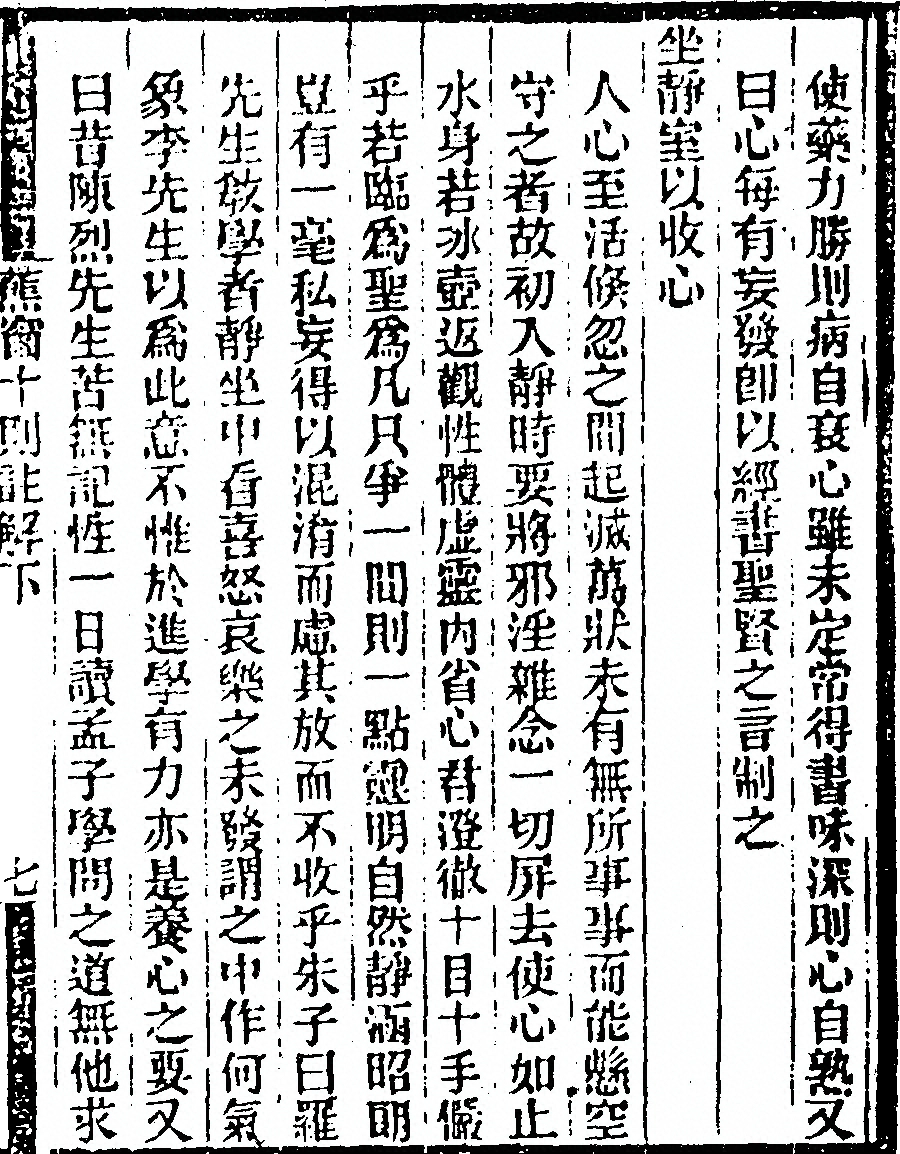 使藥力勝則病自衰心雖未定常得書味深則心自熟又
曰心每有妄發卽以經書聖賢之言制之
坐靜室以收心
人心至活倐忽之間起滅萬狀未有無所事事而能懸空
守之者故初入靜時要將邪淫雜念一切屏去使心如止
水身若冰壺返觀性體虛靈內省心君澄徹十目十手儼
乎若臨爲聖爲凡只爭一間則一點靈明自然靜涵昭朗
豈有一毫私妄得以混淆而慮其放而不收乎朱子曰羅
先生敎學者靜坐中看喜怒哀樂之未發謂之中作何氣
象李先生以爲此意不惟於進學有力亦是養心之要又
曰昔陳烈先生苦無記性一日讀孟子學問之道無他求
蕉窗十則註解下
七